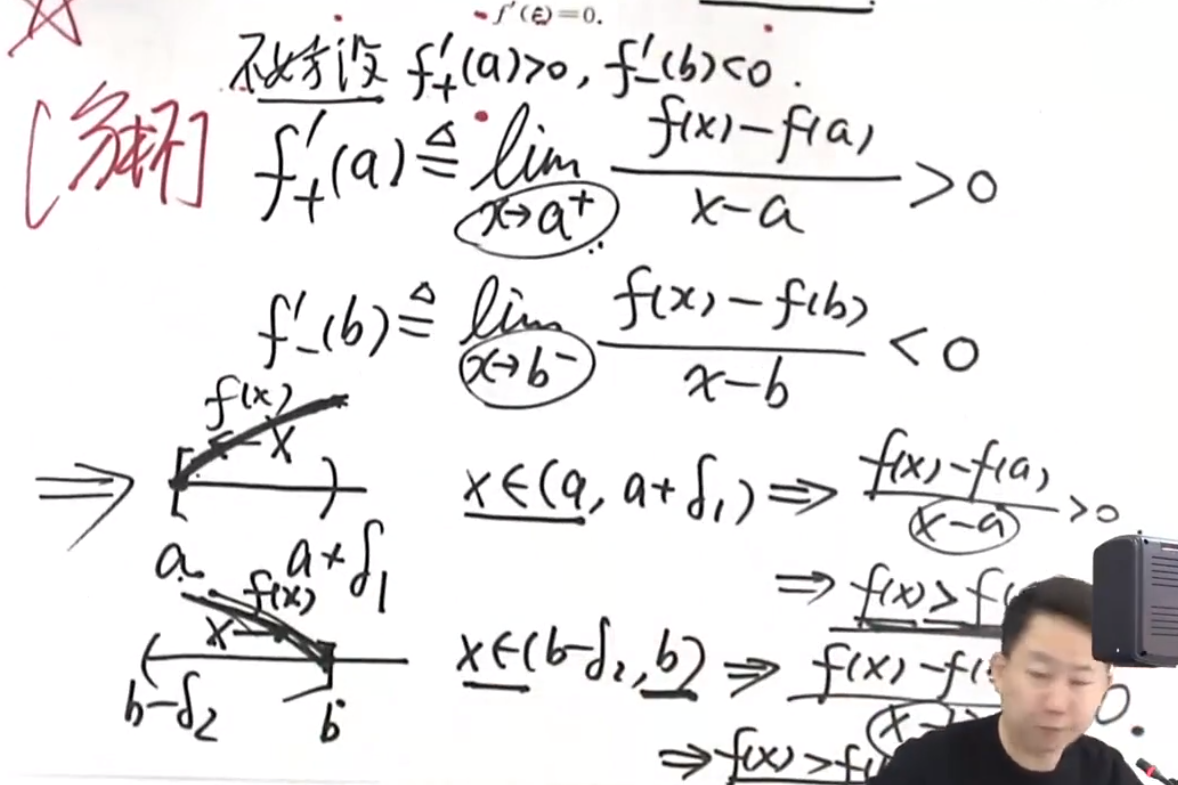 f'(ξ)=0.
不妨设 f'₊(a)>0, f'₋(b)<0.
[分析] f'₊(a) ≜ lim x→a⁺ (f(x)-f(a))/(x-a) >0
f'₋(b) ≜ lim x→b⁻ (f(x)-f(b))/(x-b) <0
f(x)
x
⇒ x∈(a, a+δ₁) ⇒ (f(x)-f(a))/(x-a) >0
a a+δ₁
⇒ f(x)>f(
f(x)
x
x∈(b-δ₂, b) ⇒ f(x)-f(
x-
0.
b-δ₂ b
⇒ f(x)>f(